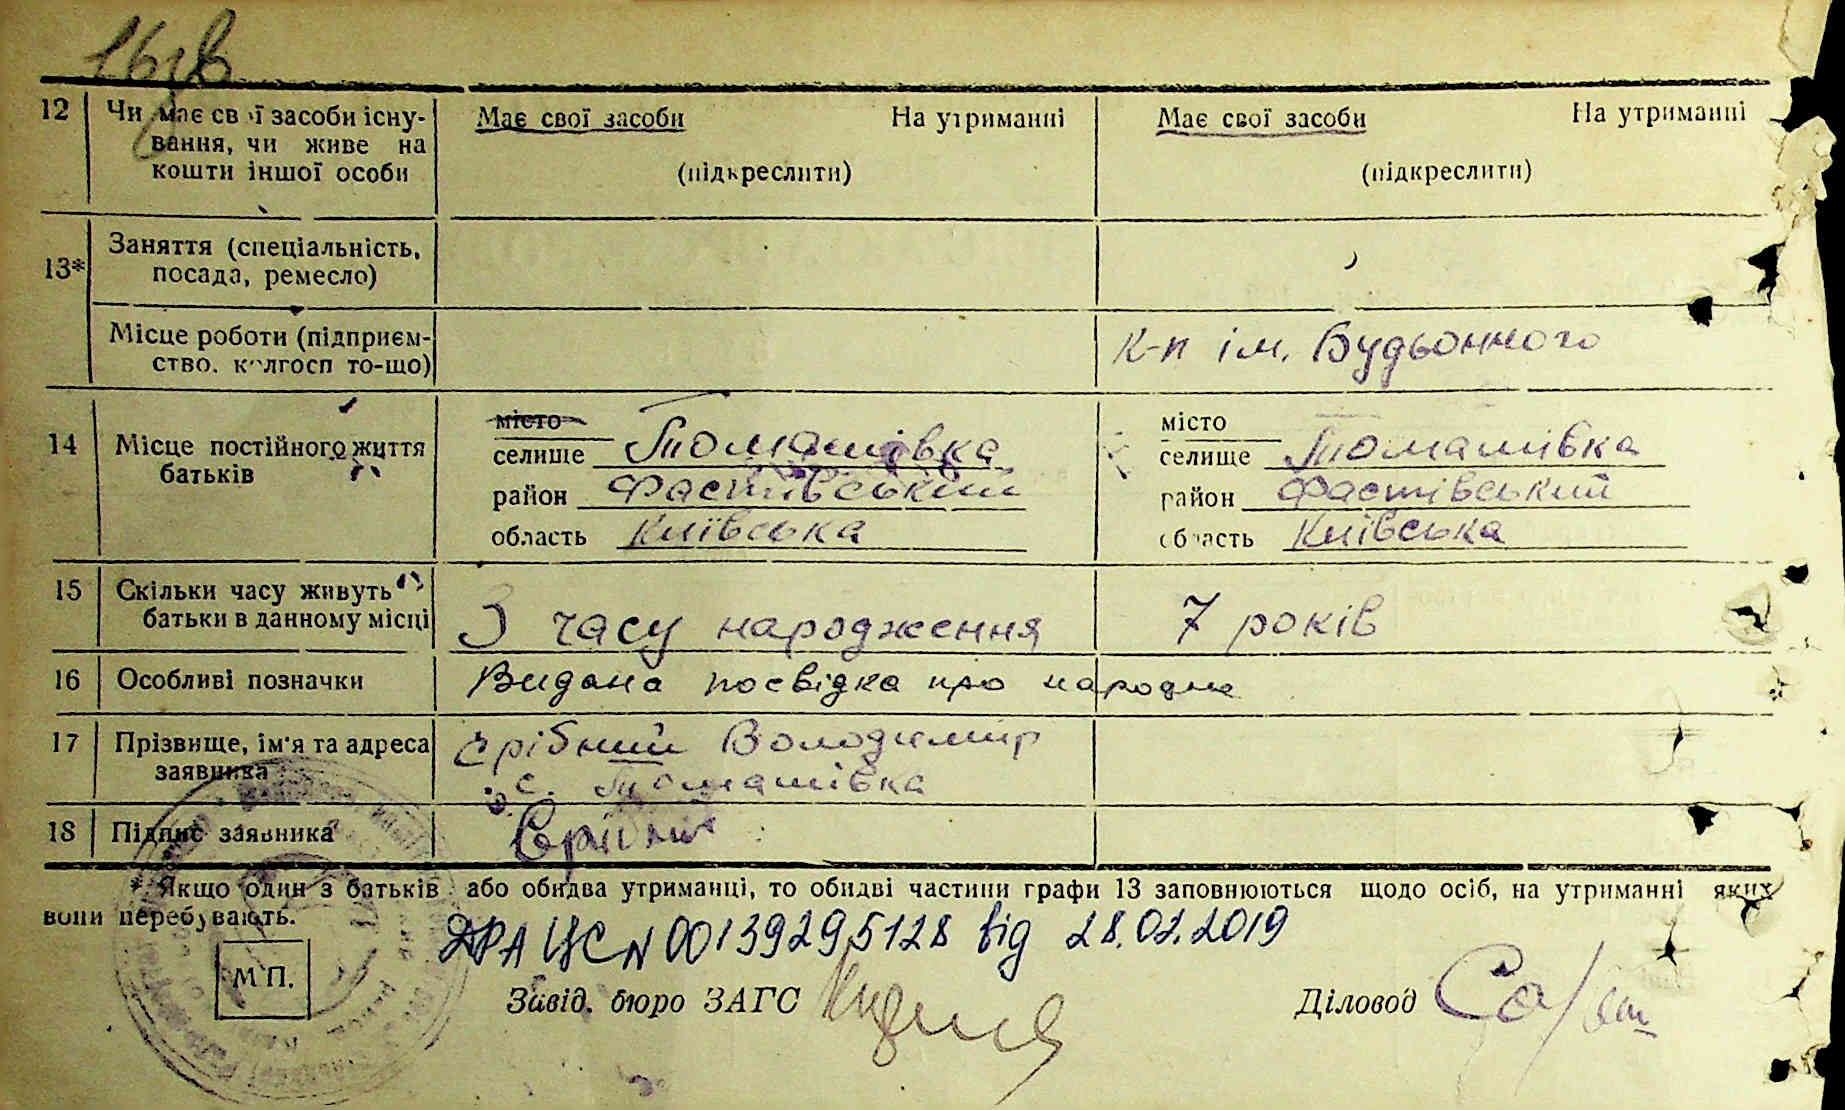 12 Чи має свої засоби існу- Має свої засоби На утриманні Має свої засоби На утриманні
вання, чи живе на
кошти іншої особи (підкреслити) (підкреслити)
13* Заняття (спеціальність,
посада, ремесло)
Місце роботи (підприєм- К-п ім. Будьонного
ство, колгосп то-що)
14 Місце постійного життя батьків
місто місто
селище Томашівка селище Томашівка
район Фастівський район Фастівський
область Київська область Київська
15 Скільки часу живуть
батьки в данному місці З часу народження 7 років
16 Особливі позначки Видана посвідка про народже
17 Прізвище, ім'я та адреса Срібний Володимир
заявника с. Томашівка
18 Підпис заявника Срібний
* Якщо один з батьків або обидва утриманці, то обидві частини графи 13 заповнюються щодо осіб, на утриманні яких
вони перебувають.
ДРАЦС N 00139295128 від 28.02.2019
М П.
Завід. бюро ЗАГС Діловод